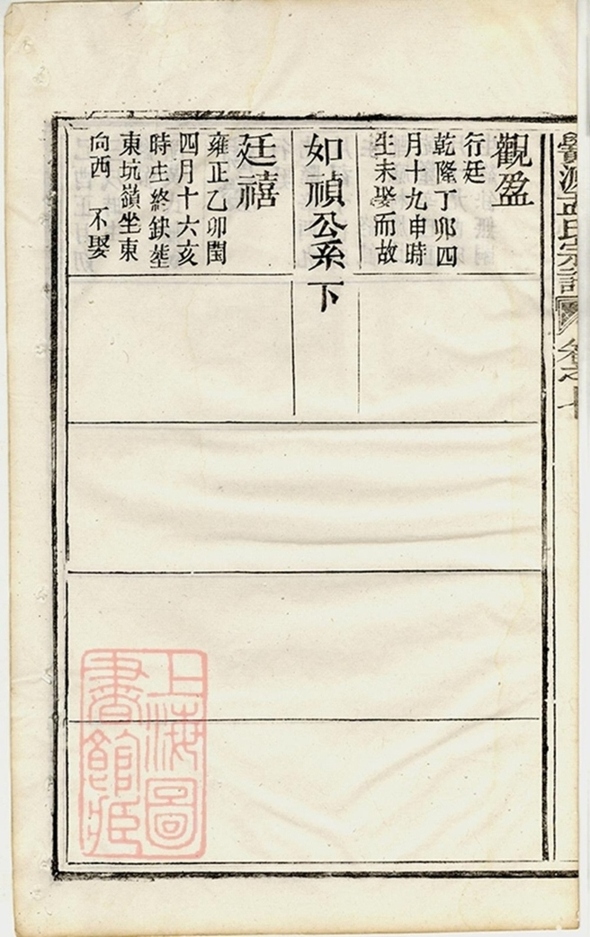 源氏宗譜
卷之七
觀盈
行廷
乾隆丁卯四
月十九申時
生未娶而故
如禎公系下
廷禧
雍正乙卯閏
四月十六亥
時生終缺塟
東坑嶺坐東
向西 不娶
上海圖
書館藏